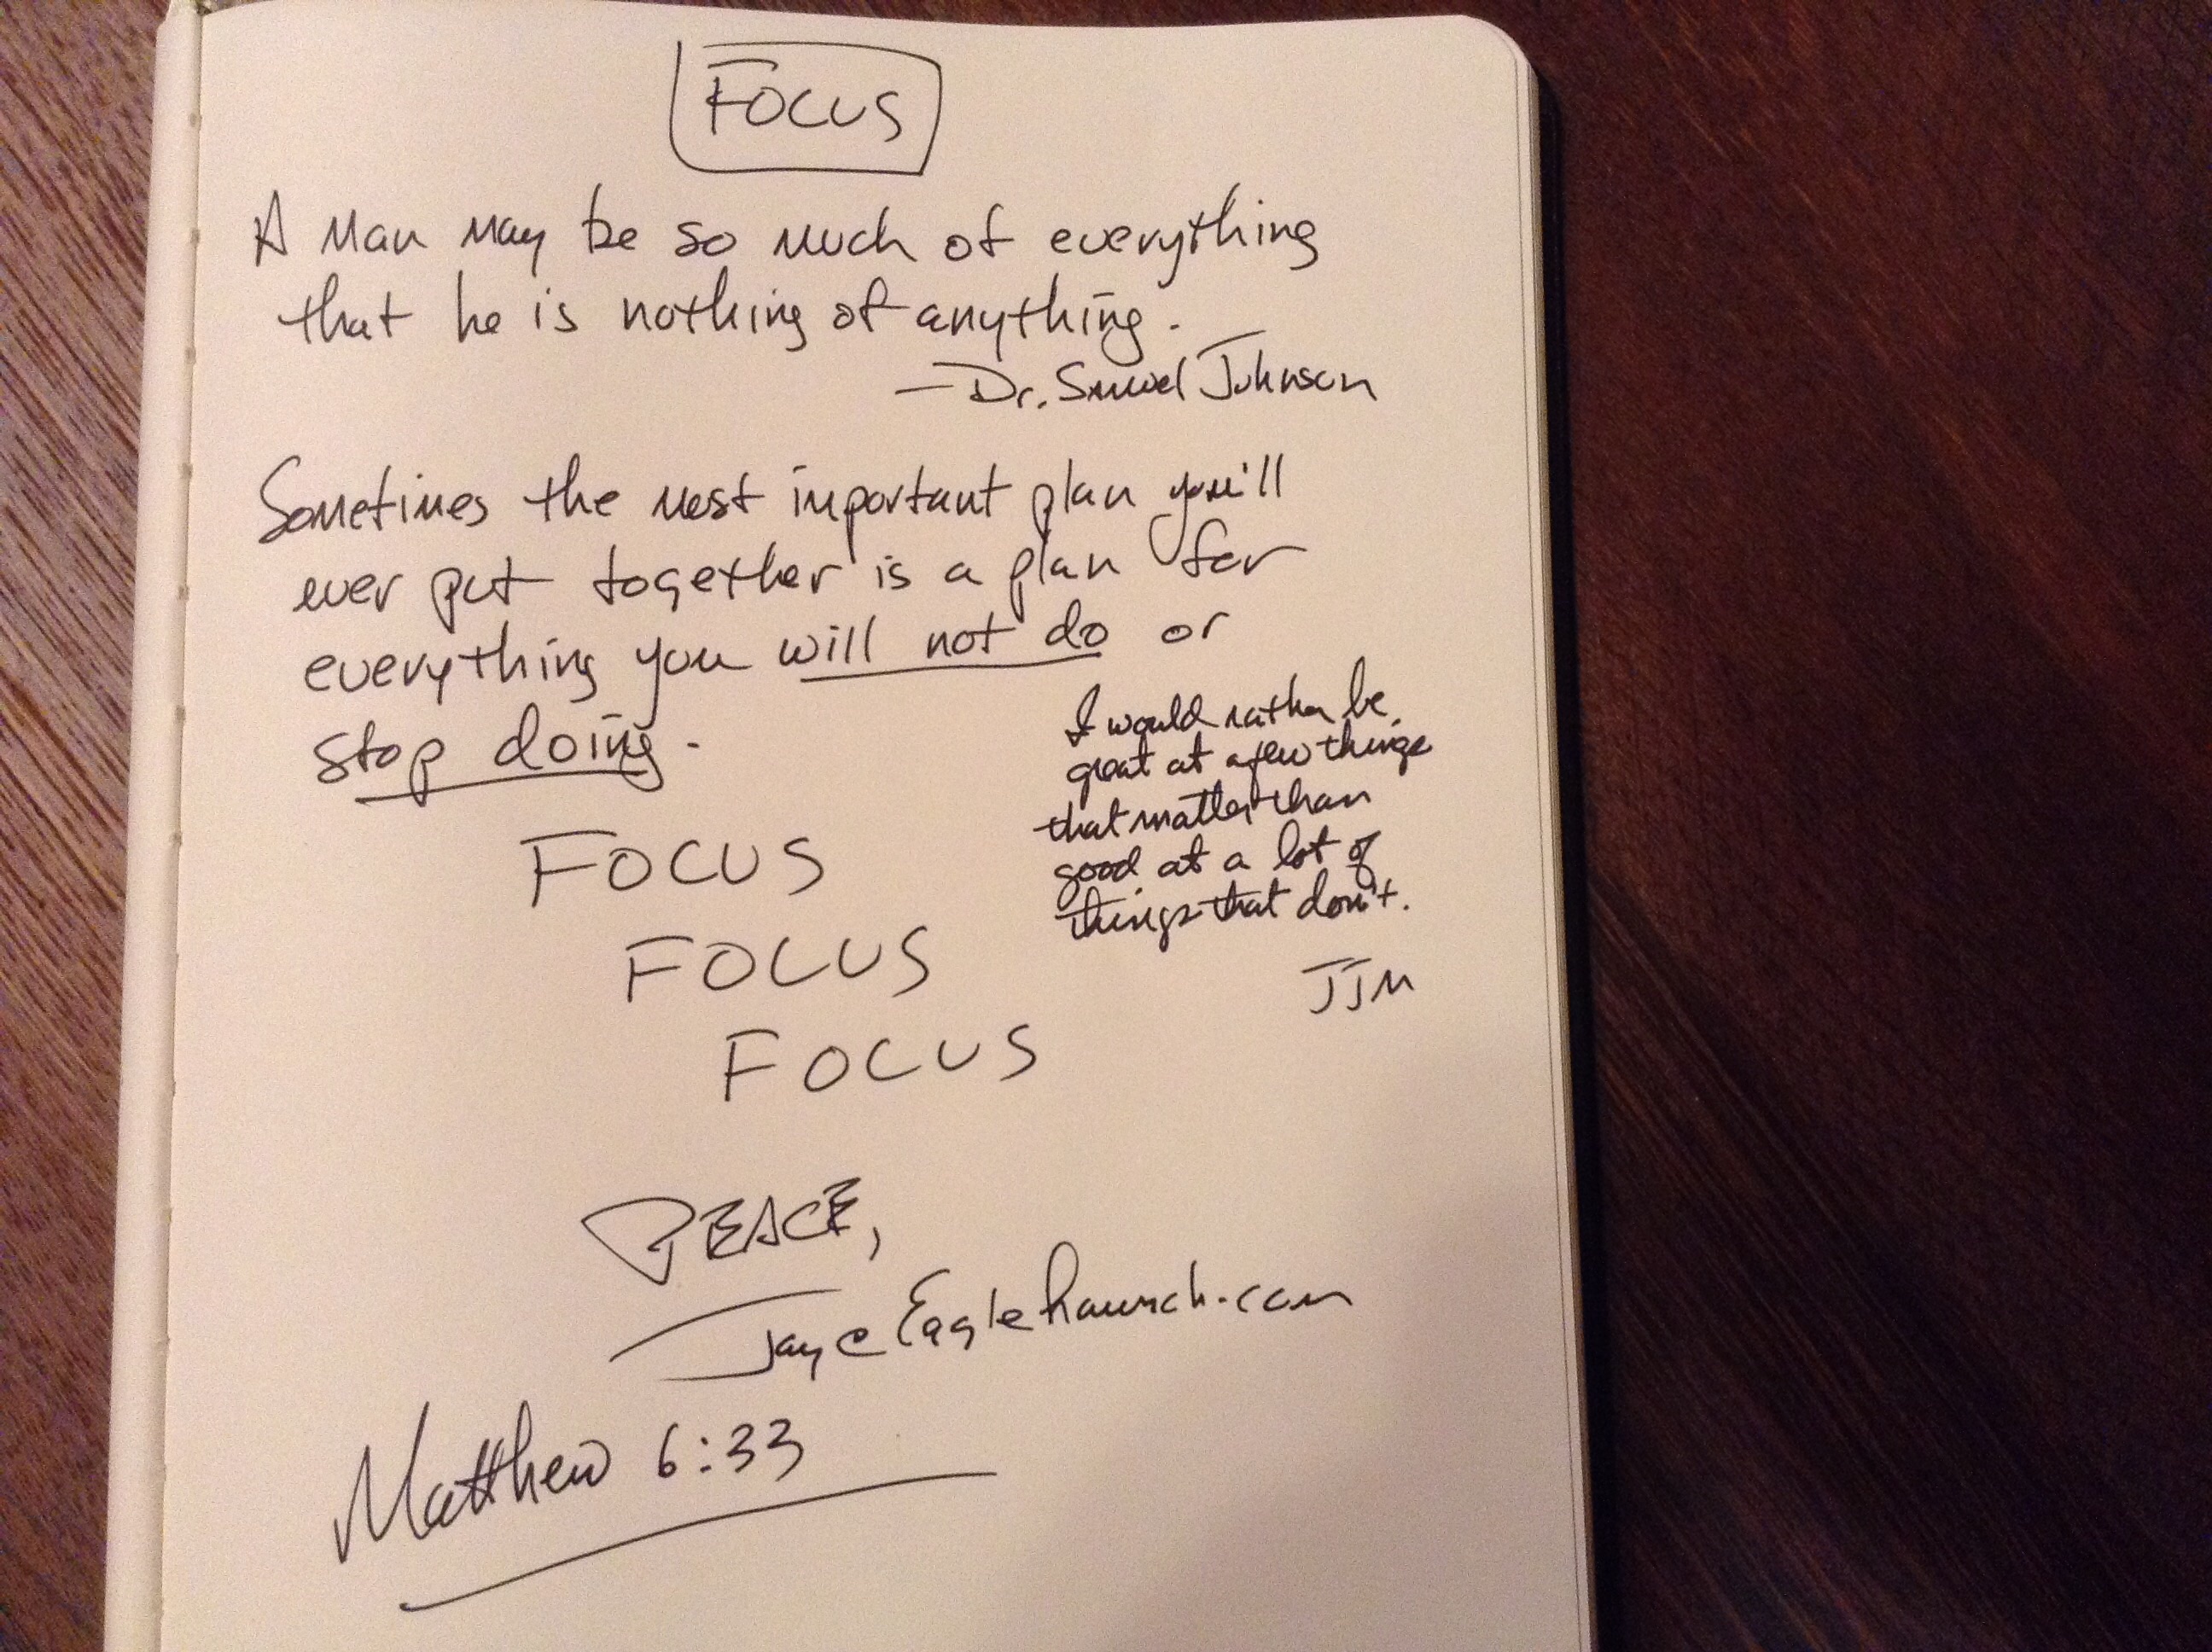 FOCUS
A man may be so much of everything
that he is nothing of anything.
—Dr. Samuel Johnson
Sometimes the most important plan you'll
ever put together is a plan for
everything you will not do or
stop doing.
I would rather be
great at a few things
that matter than
good at a lot of
things that don't.
JJM
FOCUS
FOCUS
FOCUS
PEACE,
Matthew 6:33